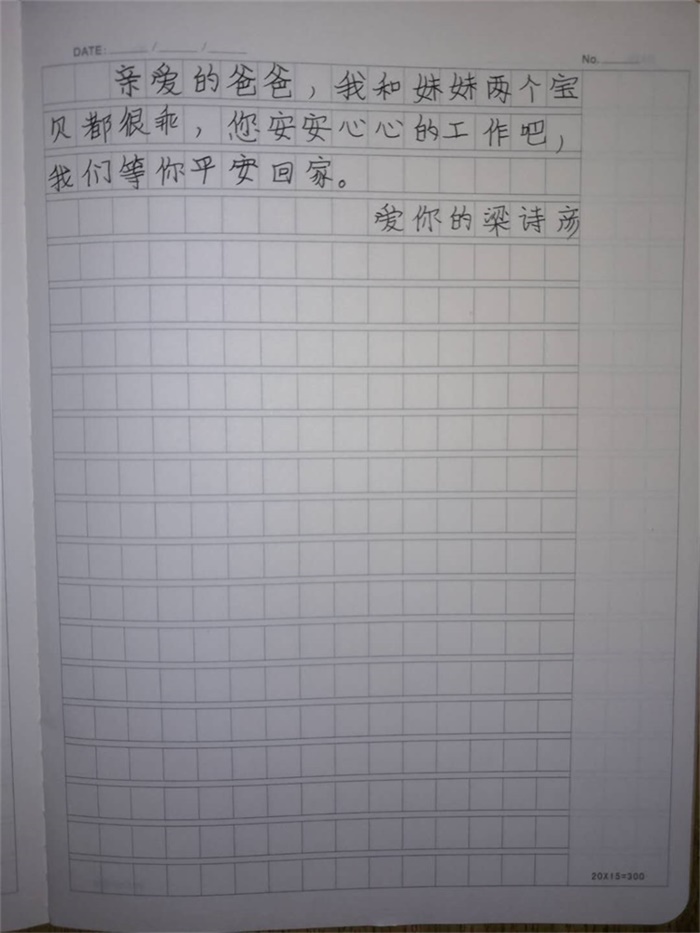 DATE: ____/____/____
No. ____
亲爱的爸爸，我和妹妹两个宝
贝都很乖，您安安心心的工作吧，
我们等你平安回家。
爱你的梁诗彦
20X15=300